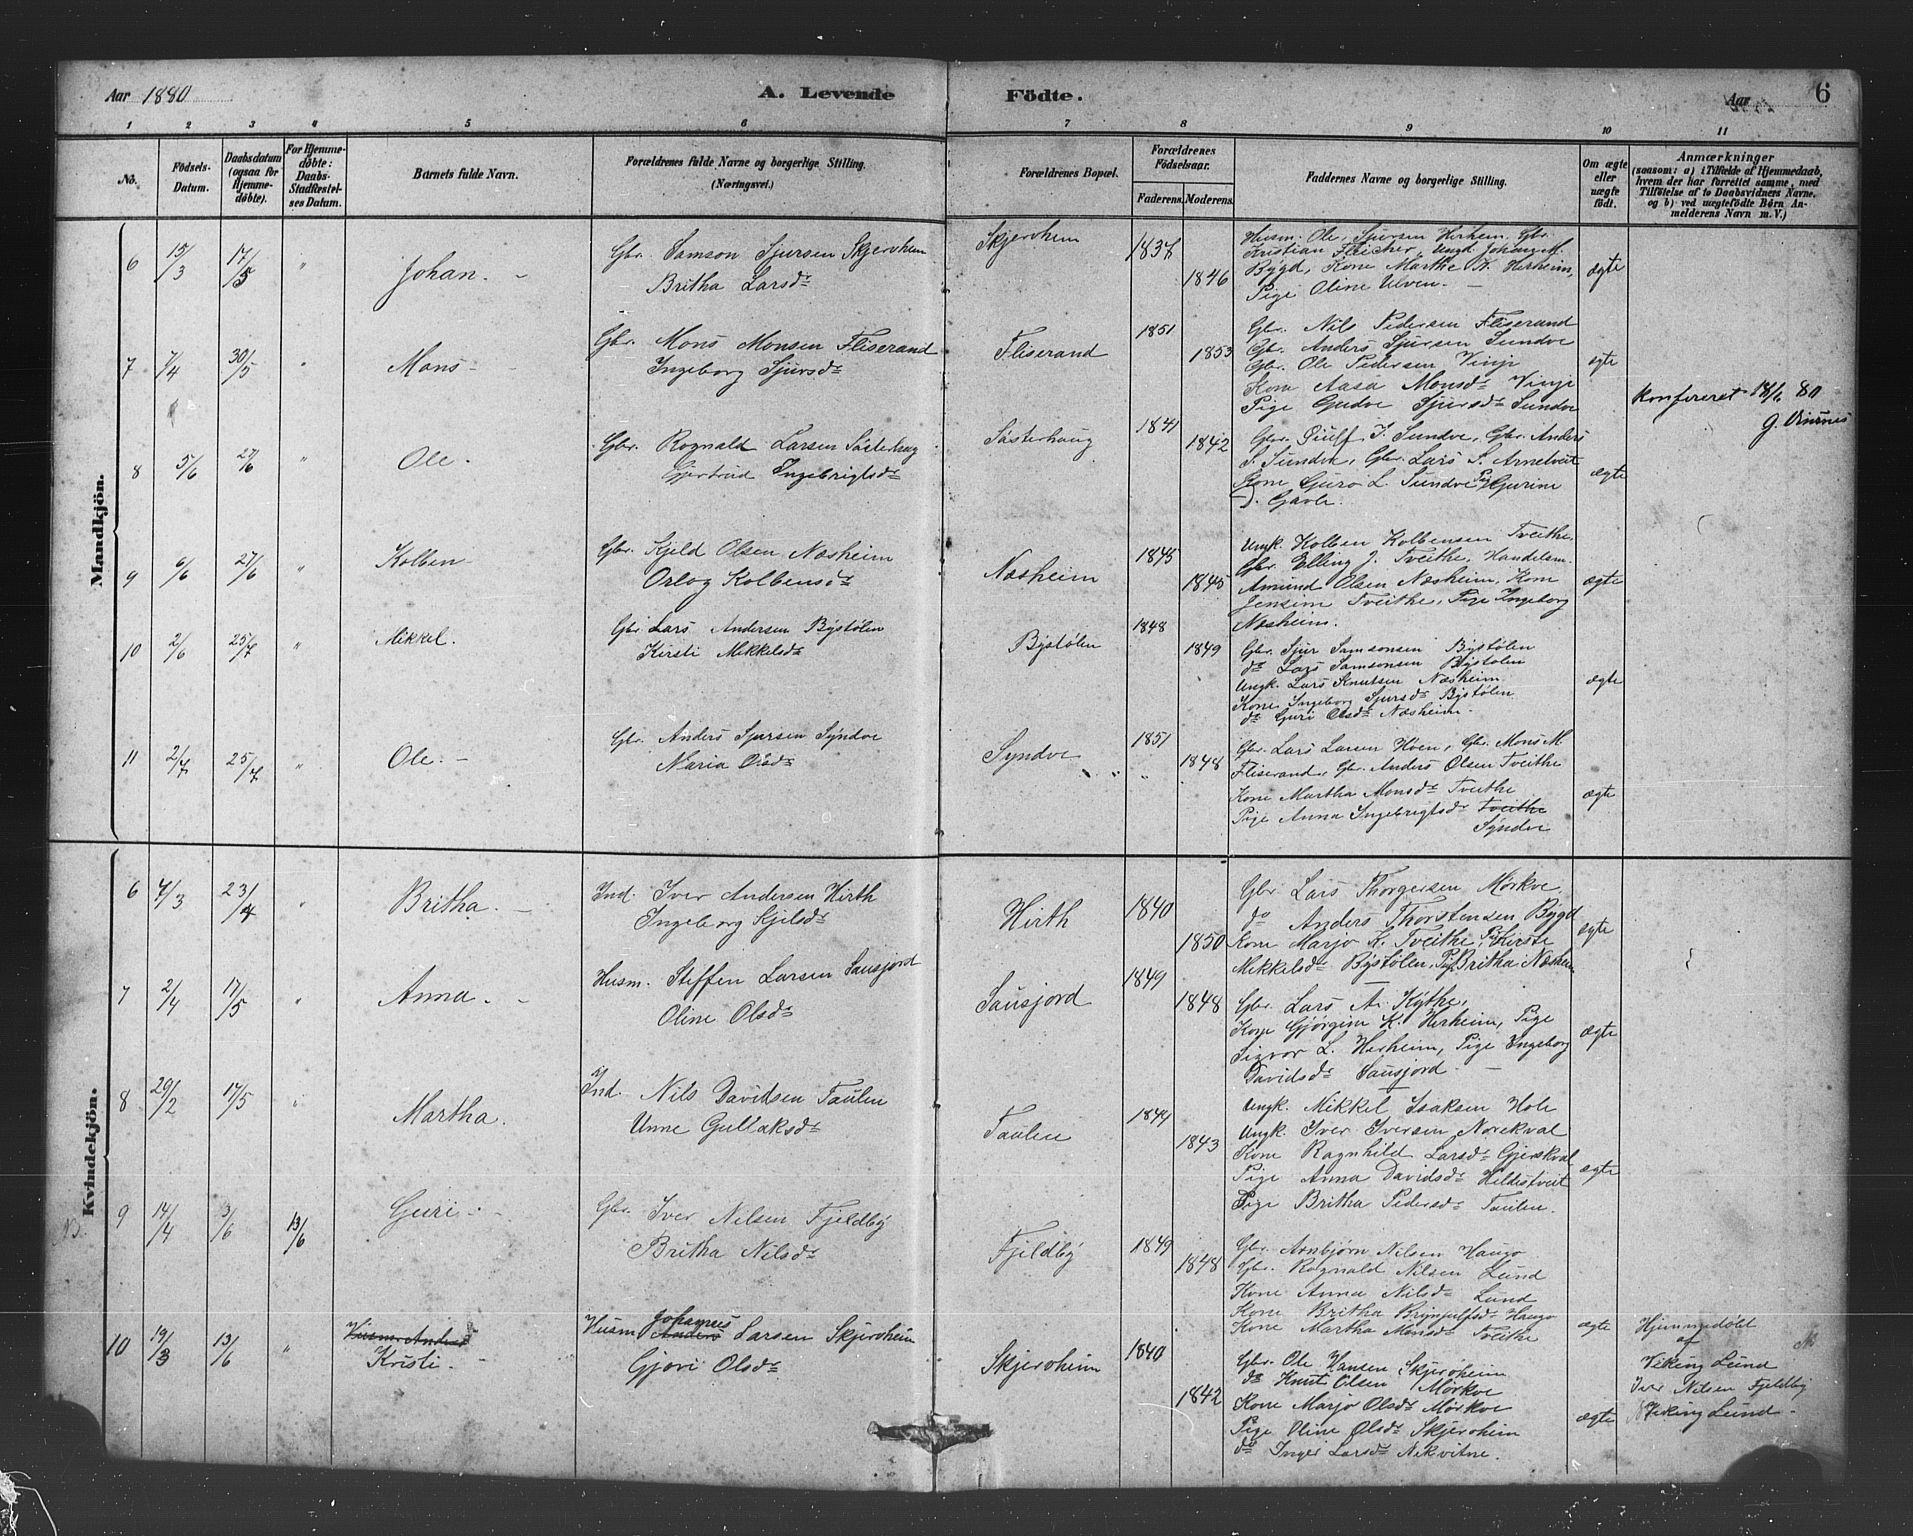 Aar 1880
A. Levende Födte.
Aar
6
1 2 3 4 5 6 7 8 9 10 11
No.
Födsels-Datum.
Daabsdatum (ogsaa for Hjemmedöbte).
For Hjemmedöbte: Daabs-Stadfæstelses Datum.
Barnets fulde Navn.
Forældrenes fulde Navne og borgerlige Stilling. (Næringsvei.)
Forældrenes Bopæl.
Forældrenes Födselsaar.
Faderens. Moderens.
Faddernes Navne og borgerlige Stilling.
Om ægte eller uægte födt.
Anmærkninger
(saasom: a) i Tilfælde af Hjemmedaab, hvem der har forrettet samme, med Tilföielse af to Daabsvidners Navne, og b) ved uægtefödte Börn Anmelderens Navn m. V.)
Mandkjön.
6 15/3 17/5 " Johan. -
Gbr. Samson Sjursen Skjervheim
Britha Larsdr
Skjervheim 1837 1846
Husm. Ole Sjursen Herheim, Gbr.
Kristian Fleicher, Ungd. Johans M.
Bygd, Kone Marthe K. Herheim,
Pige Oline Ulven. -
ægte
7 7/4 30/5 " Mons -
Gbr. Mons Monsen Fliserand
Ingeborg Sjursdr
Fliserand 1851 1853
Gbr. Nils Pedersen Fliserand
Gbr. Anders Sjursen Sundve
Gbr. Ole Pedersen Vinje
Kone Aasa Monsdr Vinje
Pige Gudve Sjursdr Sundve
ægte
Konfereret 80
G. Vinsnes
8 5/6 27/6 " Ole.
Gbr. Rognald Larsen Sásterhaug
Gjertrud Ingebrigtsdr
Sásterhaug 1841 1842
Gbr. J. Sundve, Gbr. Anders
S. Sundve, Gbr. Lars S. Arnetveit
Kone Guro L. Sundve Pige Gurine
D. Gavle.
ægte
9 6/6 27/6 " Kolben
Gbr. Kjeld Olsen Næsheim
Orlog Kolbensdr
Næsheim 1845 1845
Ungk. Kolben Kolbensen Tveithe,
Gbr. Elling J. Tveithe, Handelsm.
Amund Olsen Næsheim, Kone
Jensine Tveithe, Pige Ingeborg
Næsheim.
ægte
10 2/6 25/7 " Mikkel.
Gbr Lars Andersen Bystølen
Kirsti Mikkelsdr
Bystølen 1848 1849
Gbr. Sjur Samsonsen Bystølen
do Lars Samsonsen Bystølen
Ungk. Lars Knutsen Næsheim
Kone Ingeborg Sjursdr Bystølen
do Guri Olsdr Næsheim.
ægte
11 2/7 25/7 " Ole. -
Gbr. Anders Sjursen Syndve
Maria Olsdr
Syndve 1851 1848
Gbr. Lars Larsen Høen, Gbr. Mons M.
Fliserand, Gbr. Anders Olsen Tveithe
Kone Martha Monsdr Tveithe
Pige Anna Ingebrigtsdr Tveithe
Syndve
ægte
Kvindekjön.
6 7/3 23/4 " Britha. -
Ind. Iver Andersen Hirth
Ingeborg Kjelsdr
Hirth 1840 1850
Gbr. Lars Thorgersen Mørkve
do Anders Thorstensen Bygd
Kone Marjo K. Tveithe, Pige Kirste
Mikkelsdr Bystølen, Pige Britha Næsheim
ægte
7 2/4 17/5 " Anna. -
Husm. Steffen Larsen Sausjord
Oline Olsdr
Sausjord 1849 1848
Gbr. Lars A. Kythe,
Kone Gjørgine K. Herheim, Pige
Sigvor L. Herheim, Pige Ingeborg
Davidsdr Sausjord -
ægte
8 29/2 17/5 " Martha.
Ind. Nils Davidsen Taulen
Unne Gullaksdr
Taulen 1849 1843
Ungk. Mikkel Isaksen Hole
Ungk. Iver Iversen Norekval
Kone Ragnhild Larsdr Gjerskval
Pige Anna Davidsdr Hildestveit
Pige Britha Pedersdr Taulen.
ægte
9 14/4 3/6 13/6 Guri -
Gbr. Iver Nilsen Fjeldby
Britha Nilsdr
Fjeldby 1849 1848
Gbr. Arnbjørn Nilsen Haugo
Gbr. Rognald Nilsen Lund
Kone Anna Nilsdr Lund
Kone Britha Brynjulfsdr Haugo
Kone Martha Monsdr Tveithe
ægte
Hjemmedöbt
af
Viking Lund
Iver Nilsen Fjeldby
Viking Lund -
10 19/3 13/6 " Husm. Anders
Kristi -
Husm Johannes Anders Larsen Skjervheim
Gjøri Olsdr
Skjervheim 1840 1842
Gbr. Ole Hansen Skjervheim
do Knut Olsen Mörkve
Kone Marjo Olsdr Mörkve
Pige Oline Olsdr Skjervheim
do Inger Larsdr Nekvitne.
ægte